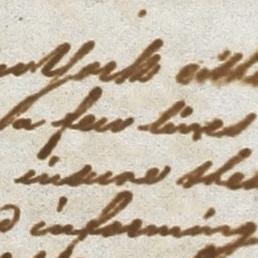 York eith
a few lines
insure the
informing